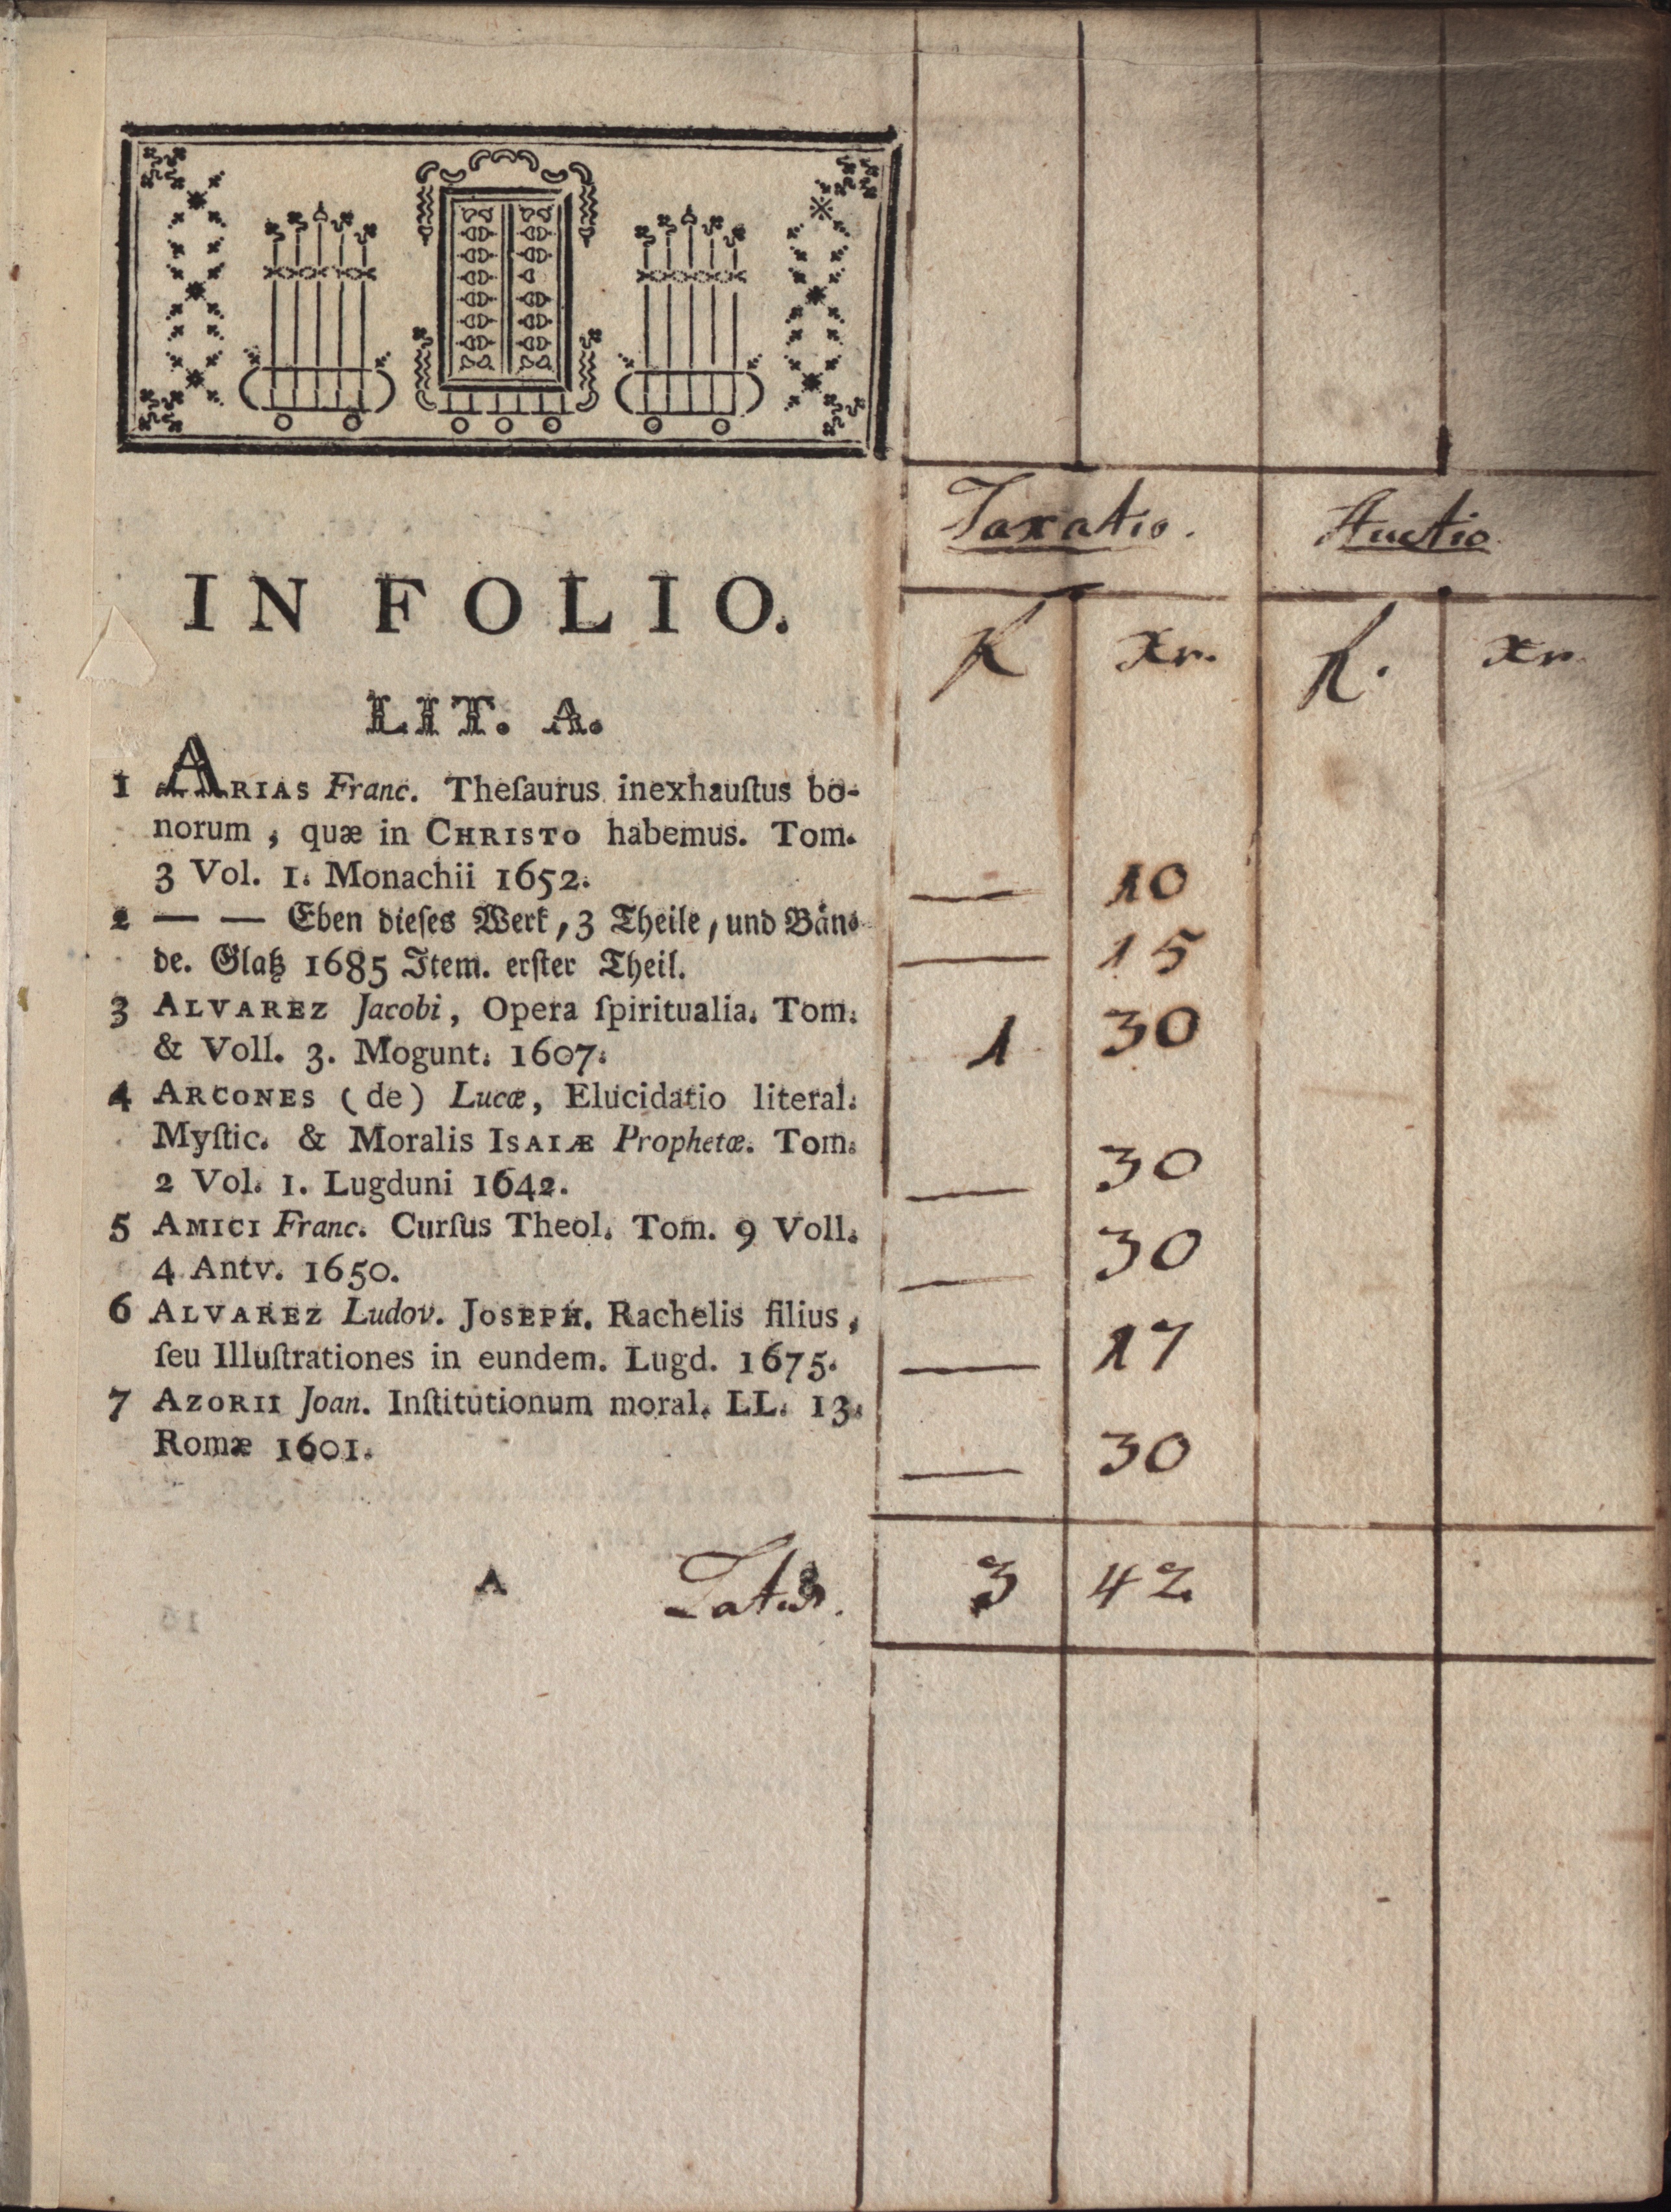 Taxatio. Auctio
IN FOLIO.
fl xr. fl. xr.
LIT. A.
1 ARIAS Franc. Theſaurus inexhauſtus bo-
norum, quæ in CHRISTO habemus. Tom.
3 Vol. 1. Monachii 1652. — 10
2 — — Eben dieſes Werk, 3 Theile, und Bän-
de. Glatz 1685 Item. erſter Theil. — 15
3 ALVAREZ Jacobi, Opera ſpiritualia. Tom.
& Voll. 3. Mogunt. 1607. 1 30
4 ARCONES (de) Lucæ, Elucidatio literal.
Myſtic. & Moralis ISAIÆ Prophetæ. Tom.
2 Vol. 1. Lugduni 1642. — 30
5 AMICI Franc. Curſus Theol. Tom. 9 Voll.
4 Antv. 1650. — 30
6 ALVAREZ Ludov. JOSEPH. Rachelis filius,
ſeu Illuſtrationes in eundem. Lugd. 1675. — 17
7 AZORII Joan. Inſtitutionum moral. LL. 13.
Romæ 1601. — 30
A Latus. 3 42